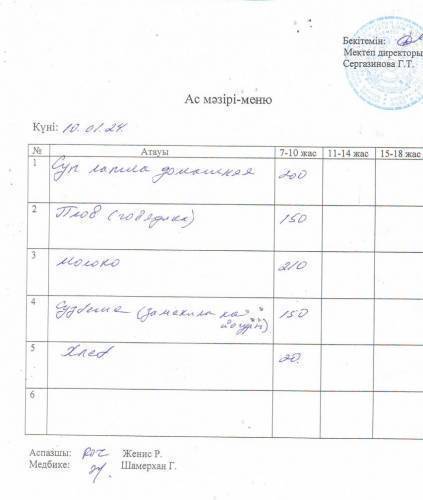 Бекітемін:
Мектеп директоры
Сергазинова Г.Т.
Ас мәзірі-меню
Күні: 10.01.24.
№ Атауы 7-10 жас 11-14 жас 15-18 жас
1 Суп лапша домашняя 200
2 Плов (говядина) 150
3 молоко 210
4 Сузбеше (замена на 150
йогурт)
5 Хлеб 20.
6
Аспазшы: Женис Р.
Медбике: Шамерхан Г.